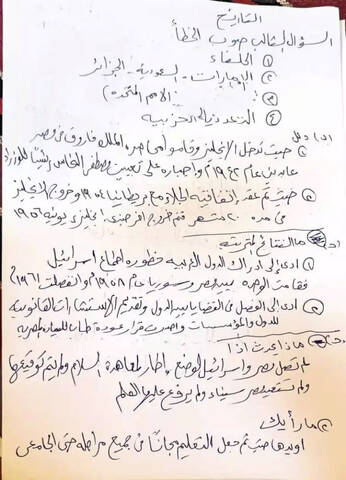 التاريخ
السؤال الثالث صوب الخطأ
١ الخلفاء
٢ الإمارات - السعودية - الجزائر
٣ (الأمم المتحدة)
٤ التعددية الحزبية
١ حيث تدخل الإنجليز وقاموا محاصرة الملك فاروق في قصر
عابدين عام ١٩٤٢م وإجباره على تعيين مصطفى النحاس رئيسًا للوزراء
٢ حيث تم عقد اتفاقية الجلاء مع بريطانيا ١٩٥٤ وخروج الإنجليز
في مدة ٢٠ شهر فتم خروج آخر جندي إنجليزي يونيه ١٩٥٦
ما النتائج المترتبة
١ أدى إلى إدراك الدول العربية خطورة أطماع إسرائيل
فقامت الوحدة بين مصر وسوريا عام ١٩٥٨م وانفصلت ١٩٦١م
٢ أدى إلى الفصل في القضايا بين الدول وتقديم الاستشارات القانونية
للدول والمؤسسات وأصدرت قرار عودة طابا للسيادة المصرية
ماذا يحدث إذا
لم تصل مصر وإسرائيل لوضع إطار لمعاهدة السلام ولم يتم توقيعها
ولم تستعيد مصر سيناء ولم يرفع عليها العلم
ما رأيك
أؤيدها حيث تم جعل التعليم مجانًا في جميع مراحله حتى الجامعي